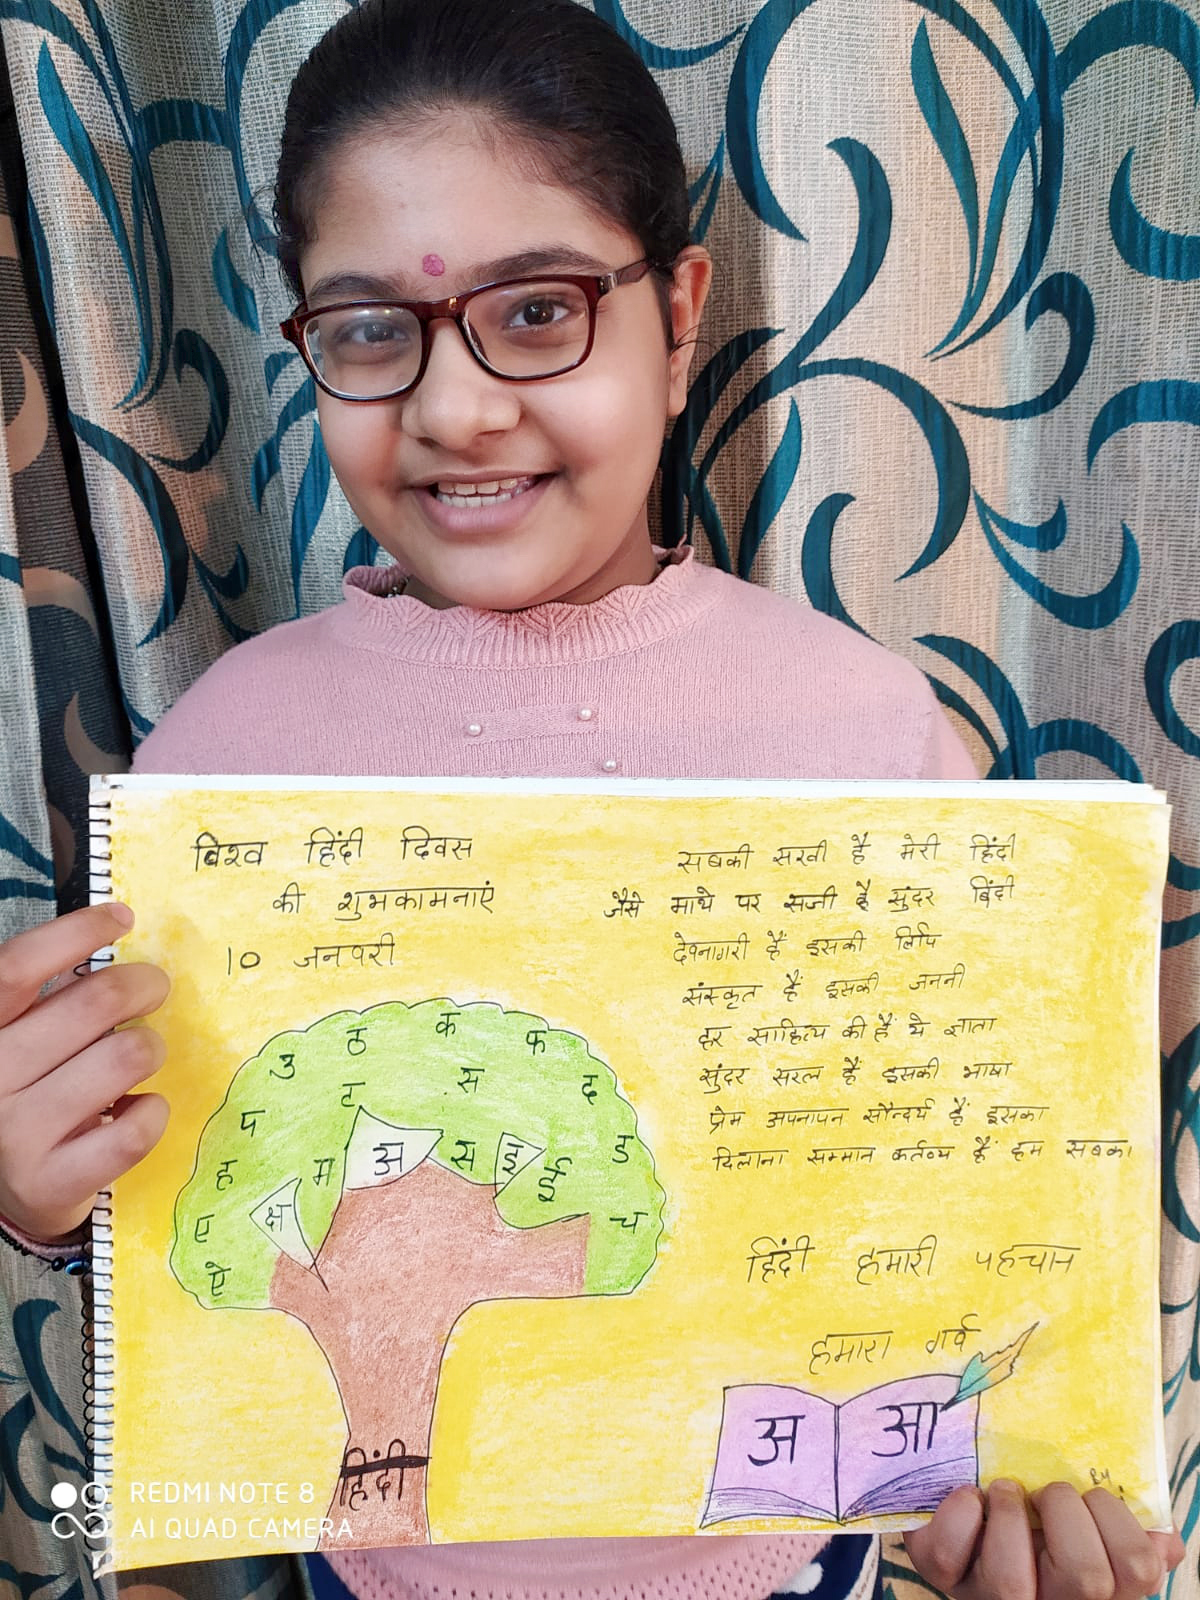 विश्व हिंदी दिवस
की शुभकामनाएं
10 जनवरी
सबकी सखी है मेरी हिंदी
जैसे माथे पर सजी है सुंदर बिंदी
देवनागरी हैं इसकी लिपि
संस्कृत हैं इसकी जननी
हर साहित्य की हैं ये ज्ञाता
सुंदर सरल हैं इसकी भाषा
प्रेम अपनापन सौन्दर्य हैं इसका
दिलाना सम्मान कर्तव्य हैं हम सबका
हिंदी हमारी पहचान
हमारा गर्व
उ ठ क फ
ट स द
प म अ स इ ई ड
ह क्ष च
ए
ऐ
हिंदी
अ आ
By
REDMI NOTE 8
AI QUAD CAMERA